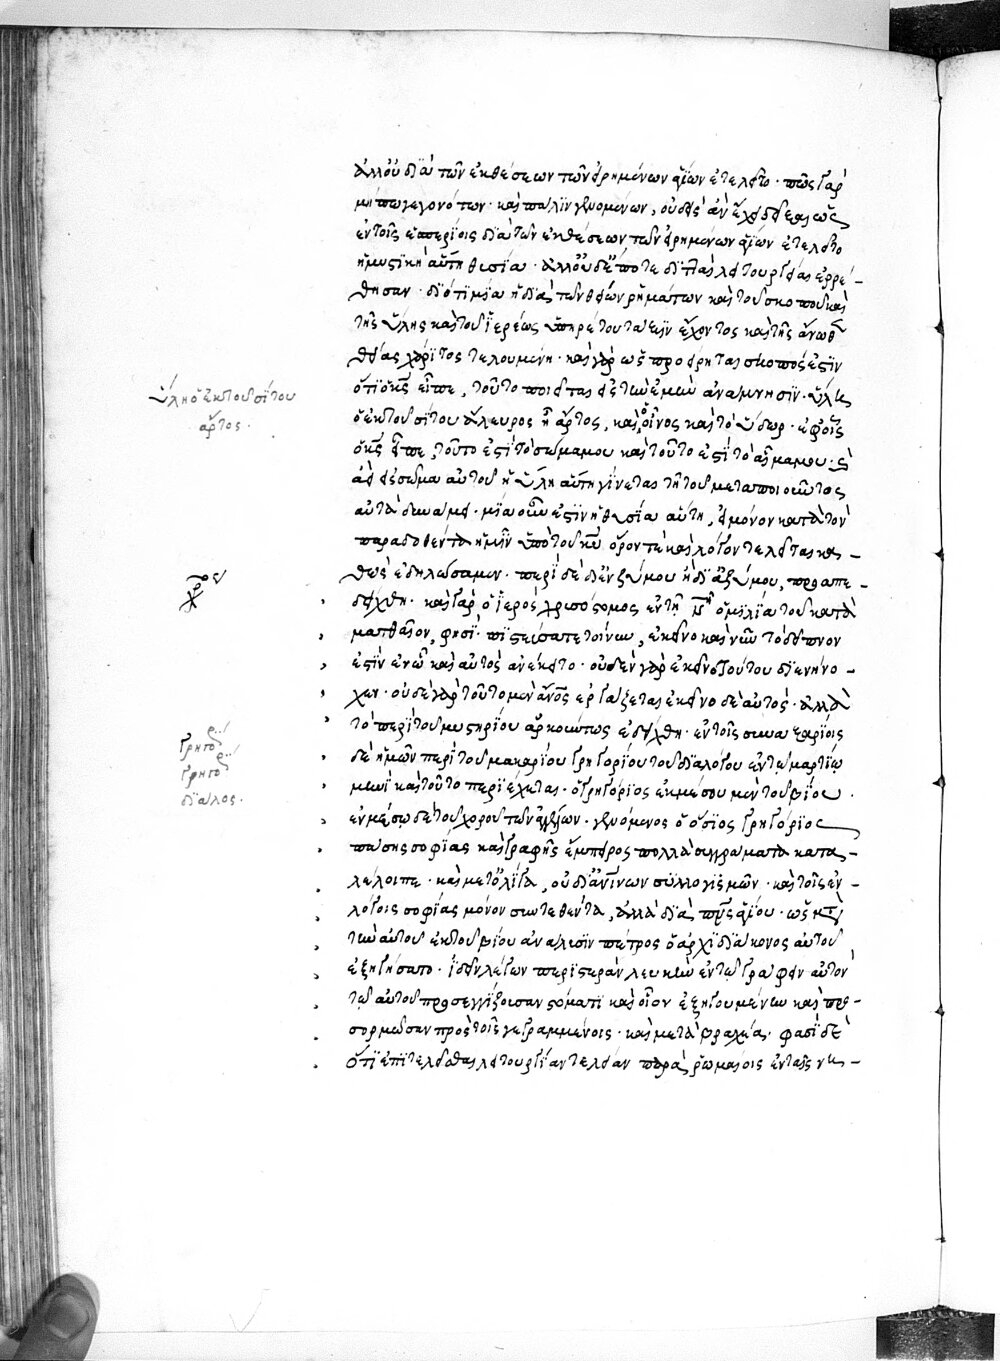 ἀλλ' οὐ διὰ τῶν ἐκθέσεων τῶν εἰρημένων ἁγίων ἐτελεῖτο · πῶς γὰρ
μήπω γεγονότων · καὶ πάλιν γινομένων, οὐδεὶς ἂν ἔχοι δεῖξαι ὡς
ἐν τοῖς ἑσπερίοις διὰ τῶν ἐκθέσεων τῶν εἰρημένων ἁγίων ἐτελεῖτο
ἡ μυστικὴ αὕτη θυσία · ἀλλ' οὐδέποτε διπλαῖ λειτουργίαι ἐρρέ-
θησαν · διότι μία ἡ διὰ τῶν θείων ῥημάτων καὶ τοῦ σκοποῦ καὶ
τῆς ὕλης καὶ τοῦ ἱερέως ὑπηρέτου τάξιν ἔχοντος καὶ τῆς ἄνωθεν
θείας χάριτος τελουμένη · καὶ γὰρ ὡς προείρηται σκοπός ἐστιν
ὅτι ὁ κς εἶπε, τοῦτο ποιεῖτε εἰς τὴν ἐμὴν ἀνάμνησιν · ὕλη
ὁ ἐκ τοῦ σίτου ἄλευρος ἢ ἄρτος, καὶ ὁ οἶνος καὶ τὸ ὕδωρ · ἐφ' οἷς
ὁ κς εἶπε, τοῦτό ἐστι τὸ σῶμά μου καὶ τοῦτό ἐστι τὸ αἷμά μου · καὶ
ἀεὶ εἰς σῶμα αὐτοῦ ἡ ὕλη αὕτη γίνεται τῇ τοῦ μεταποιοῦντος
αὐτὰ δυνάμει · μία οὖν ἐστιν ἡ θυσία αὕτη, εἰ μόνον κατὰ τὸν
παραδοθέντα ἡμῖν ὑπὸ τοῦ κυ ὅρον τε καὶ λόγον τελεῖται κα-
θὼς ἐδηλώσαμεν · περὶ δὲ δι' ἐνζύμου ἢ δι' ἀζύμου, προαπε-
δείχθη · καὶ γὰρ ὁ ἱερὸς χρυσόστομος ἐν τῇ ὁμιλίᾳ τοῦ κατὰ
ματθαῖον, φησί · πιστεύσατε τοίνυν, ἐκεῖνο καὶ νῦν τὸ δεῖπνον
ἐστὶν ἐν ᾧ καὶ αὐτὸς ἀνέκειτο · οὐδὲν γὰρ ἐκεῖνο τούτου διενήνο-
χεν · οὐδὲ γὰρ τοῦτο μὲν ἄνος ἐργάζεται ἐκεῖνο δὲ αὐτός · ἀλλὰ
τὸ περὶ τοῦ μυστηρίου ἀρκούντως ἐδείχθη · ἐν τοῖς συναξαρίοις
δὲ ἡμῶν περὶ τοῦ μακαρίου γρηγορίου τοῦ διαλόγου ἐν τῷ μαρτίῳ
μηνὶ καὶ τοῦτο περιέχεται · ὁ γρηγόριος ἐκ μέσου μὲν τοῦ βίου ·
ἐν μέσῳ δὲ τοῦ χοροῦ τῶν ἀγγέλων · γενόμενος ὁ ὅσιος γρηγόριος
πάσης σοφίας καὶ γραφῆς ἔμπειρος πολλὰ συγγράμματα κατα-
λέλοιπε · καὶ μετ' ὀλίγα, οὐ διά τινων συλλογισμῶν · καὶ τοῖς ἐν
λόγοις σοφίας μόνον συντεθέντα, ἀλλὰ διὰ πνς ἁγίου · ὡς μετὰ
τὴν αὐτοῦ ἐκ τοῦ βίου ἀνάλυσιν πέτρος ὁ ἀρχιδιάκονος αὐτοῦ
ἐξηγήσατο · ἰδεῖν λέγων περιστερὰν λευκὴν ἐν τῷ γράφειν αὐτὸν
τῷ αὐτοῦ προσεγγίζουσαν στόματι καὶ οἷον ἐξηγουμένην καὶ παρ-
ορμῶσαν πρὸς τοῖς γεγραμμένοις · καὶ μετὰ βραχέα · φασὶ δὲ
ὅτι ἐπιτελεῖσθαι λειτουργίαν τελείαν παρὰ ῥωμαίοις ἐν ταῖς νη-
ὕλη ὁ ἐκ τοῦ σίτου
ἄρτος ·
γρηγο
γρηγο
διαλος ·